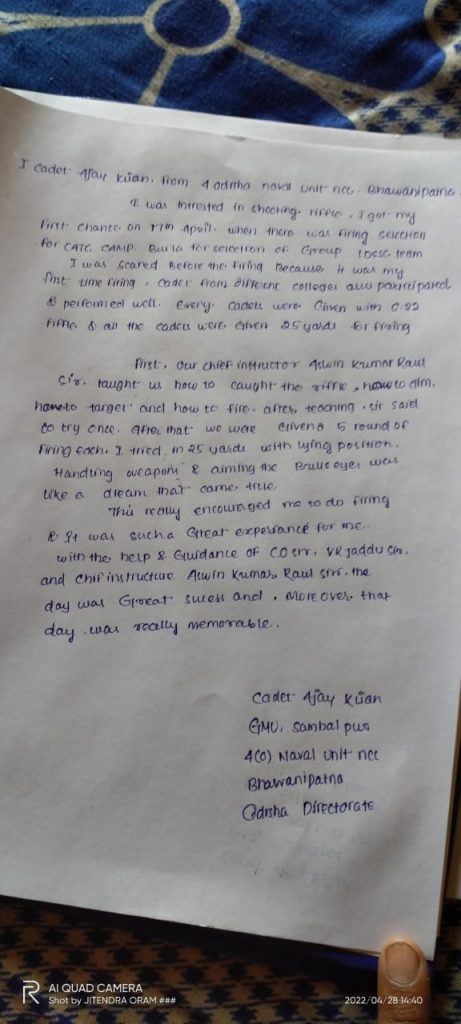 I cadet Ajay Kuan. from 4 odisha naval unit ncc. Bhawanipatna.
I was Intrested in shooting. riffle. I got my
first chance on 17th April. when there was firing selection
for CATC CAMP. Burla for selection of Group IDSSC team.
I was scared Before the firing Because it was my
first time firing. cadet from different colleges also participated
& performed well. Every. cadets were Given with 0.22
riffle & all the cadets were Given 25 yards for firing
first, our chief instructor Aswin Kumar Raul
Sir, taught us how to caught the riffle, how to aim.
how to target and how to fire. after, teaching. sir said
to try once. After that we were Given a 5 round of
firing each. I fired in 25 yards with lying position.
Handling weapons & aiming the Bulls eyes was
like a dream that came true.
This really encouraged me to do firing
& It was such a Great experiance for me.
with the help & Guidance of C.O sir. VR Jaddu Sir.
and chif instructure Aswin Kumar Raul sir. the
day was Great sucess and. More over that
day. was really memorable..
Cadet Ajay Kuan
GMU, Sambalpur
4(O) Naval Unit ncc
Bhawanipatna
Odisha Directorate.
AI QUAD CAMERA
Shot by JITENDRA ORAM ###
2022/04/28 14:40